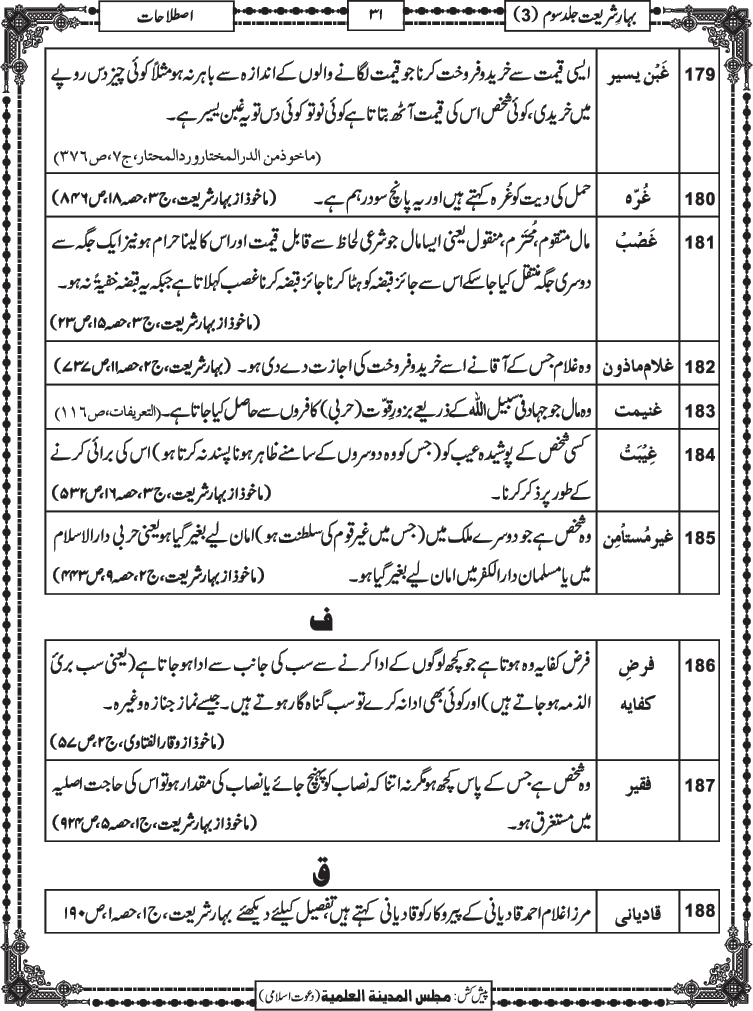 بہارِشریعت جلد سوم (3)
۳۱
اصطلاحات
179 غَبْن یسیر ایسی قیمت سے خریدوفروخت کرنا جو قیمت لگانے والوں کے اندازہ سے باہر نہ ہو مثلاً کوئی چیز دس روپے
میں خریدی، کوئی شخص اس کی قیمت آٹھ بتاتا ہے کوئی نو تو کوئی دس تو یہ غبن یسیر ہے۔
(ماخوذمن الدرالمختاروردالمحتار،ج۷،ص۳۷۶)
180 غُرّہ حمل کی دیت کو غُرہ کہتے ہیں اور یہ پانچ سو درہم ہے۔ (ماخوذ از بہارشریعت، ج۳، حصہ ۱۸، ص۸۴۶)
181 غَصْبْ مال متقوم، مُحترم، منقول یعنی ایسا مال جو شرعی لحاظ سے قابل قیمت اور اس کا لینا حرام ہو نیز ایک جگہ سے
دوسری جگہ منتقل کیا جا سکے اس سے جائز قبضہ کو ہٹا کرنا جائز قبضہ کرنا غصب کہلاتا ہے جبکہ یہ قبضہ خفیۃً نہ ہو۔
(ماخوذ از بہارشریعت، ج۳، حصہ ۱۵، ص۲۳)
182 غلام ماذون وہ غلام جس کے آقا نے اسے خریدوفروخت کی اجازت دے دی ہو۔ (بہارشریعت، ج۲، حصہ ۱۱، ص۷۳۷)
183 غنیمت وہ مال جو جہاد فی سبیل اللہ کے ذریعے بزور قوّت (حربی) کافروں سے حاصل کیا جاتا ہے۔ (التعریفات،ص۱۱۶)
184 غِیْبَتْ کسی شخص کے پوشیدہ عیب کو (جس کو وہ دوسروں کے سامنے ظاہر ہونا پسند نہ کرتا ہو) اس کی برائی کرنے
کے طور پر ذکر کرنا۔ (ماخوذ از بہارشریعت، ج۳، حصہ ۱۶، ص۵۳۲)
185 غیر مُستأمِن وہ شخص ہے جو دوسرے ملک میں (جس میں غیر قوم کی سلطنت ہو) امان لیے بغیر گیا ہو یعنی حربی دارالاسلام
میں یا مسلمان دارالکفر میں امان لیے بغیر گیا ہو۔ (ماخوذ از بہارشریعت، ج۲، حصہ ۹، ص۴۴۳)
ف
186 فرضِ کفایہ فرض کفایہ وہ ہوتا ہے جو کچھ لوگوں کے ادا کرنے سے سب کی جانب سے ادا ہو جاتا ہے (یعنی سب برئ
الذمہ ہو جاتے ہیں) اور کوئی بھی ادا نہ کرے تو سب گناہ گار ہوتے ہیں۔ جیسے نماز جنازہ وغیرہ۔
(ماخوذ از وقارالفتاوی، ج۲، ص۵۷)
187 فقیر وہ شخص ہے جس کے پاس کچھ ہو مگر نہ اتنا کہ نصاب کو پہنچ جائے یا نصاب کی مقدار ہو تو اس کی حاجت اصلیہ
میں مستغرق ہو۔ (ماخوذ از بہارشریعت، ج۱، حصہ ۵، ص۹۲۴)
ق
188 قادیانی مرزا غلام احمد قادیانی کے پیروکار کو قادیانی کہتے ہیں، تفصیل کیلئے دیکھئے بہارشریعت، ج۱، حصہ ۱، ص۱۹۰
پیش کش: مجلس المدینۃ العلمیۃ (دعوت اسلامی)